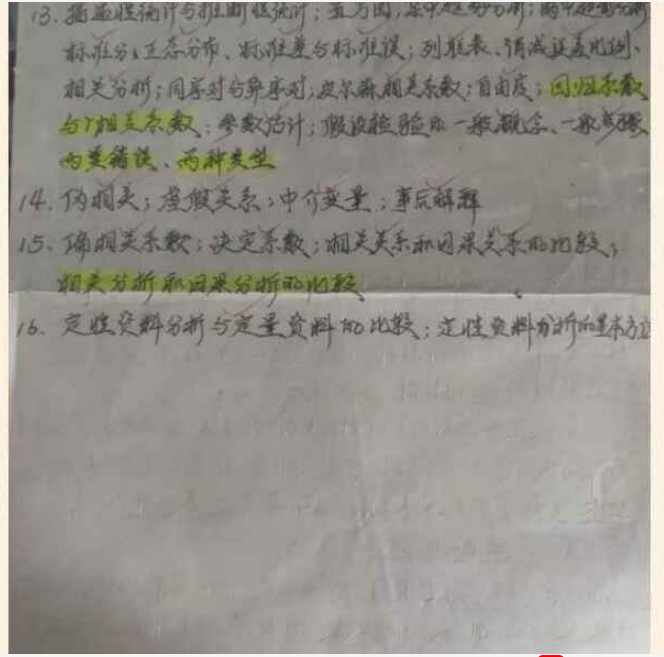 13. 描述性统计与推断性统计；直方图；集中趋势分析；离中趋势分析
标准分、正态分布、标准差与标准误；列联表、消减误差比例、
相关分析；同序对与异序对；皮尔森相关系数；自由度；回归系数
与相关系数；参数估计；假设检验的一般概念、一般步骤
两类错误、两种类型
14. 伪相关；虚假关系；中介变量；事后解释
15. 偏相关系数；决定系数；相关关系和因果关系的比较；
相关分析和因果分析的比较
16. 定性资料分析与定量资料的比较；定性资料分析的基本方法